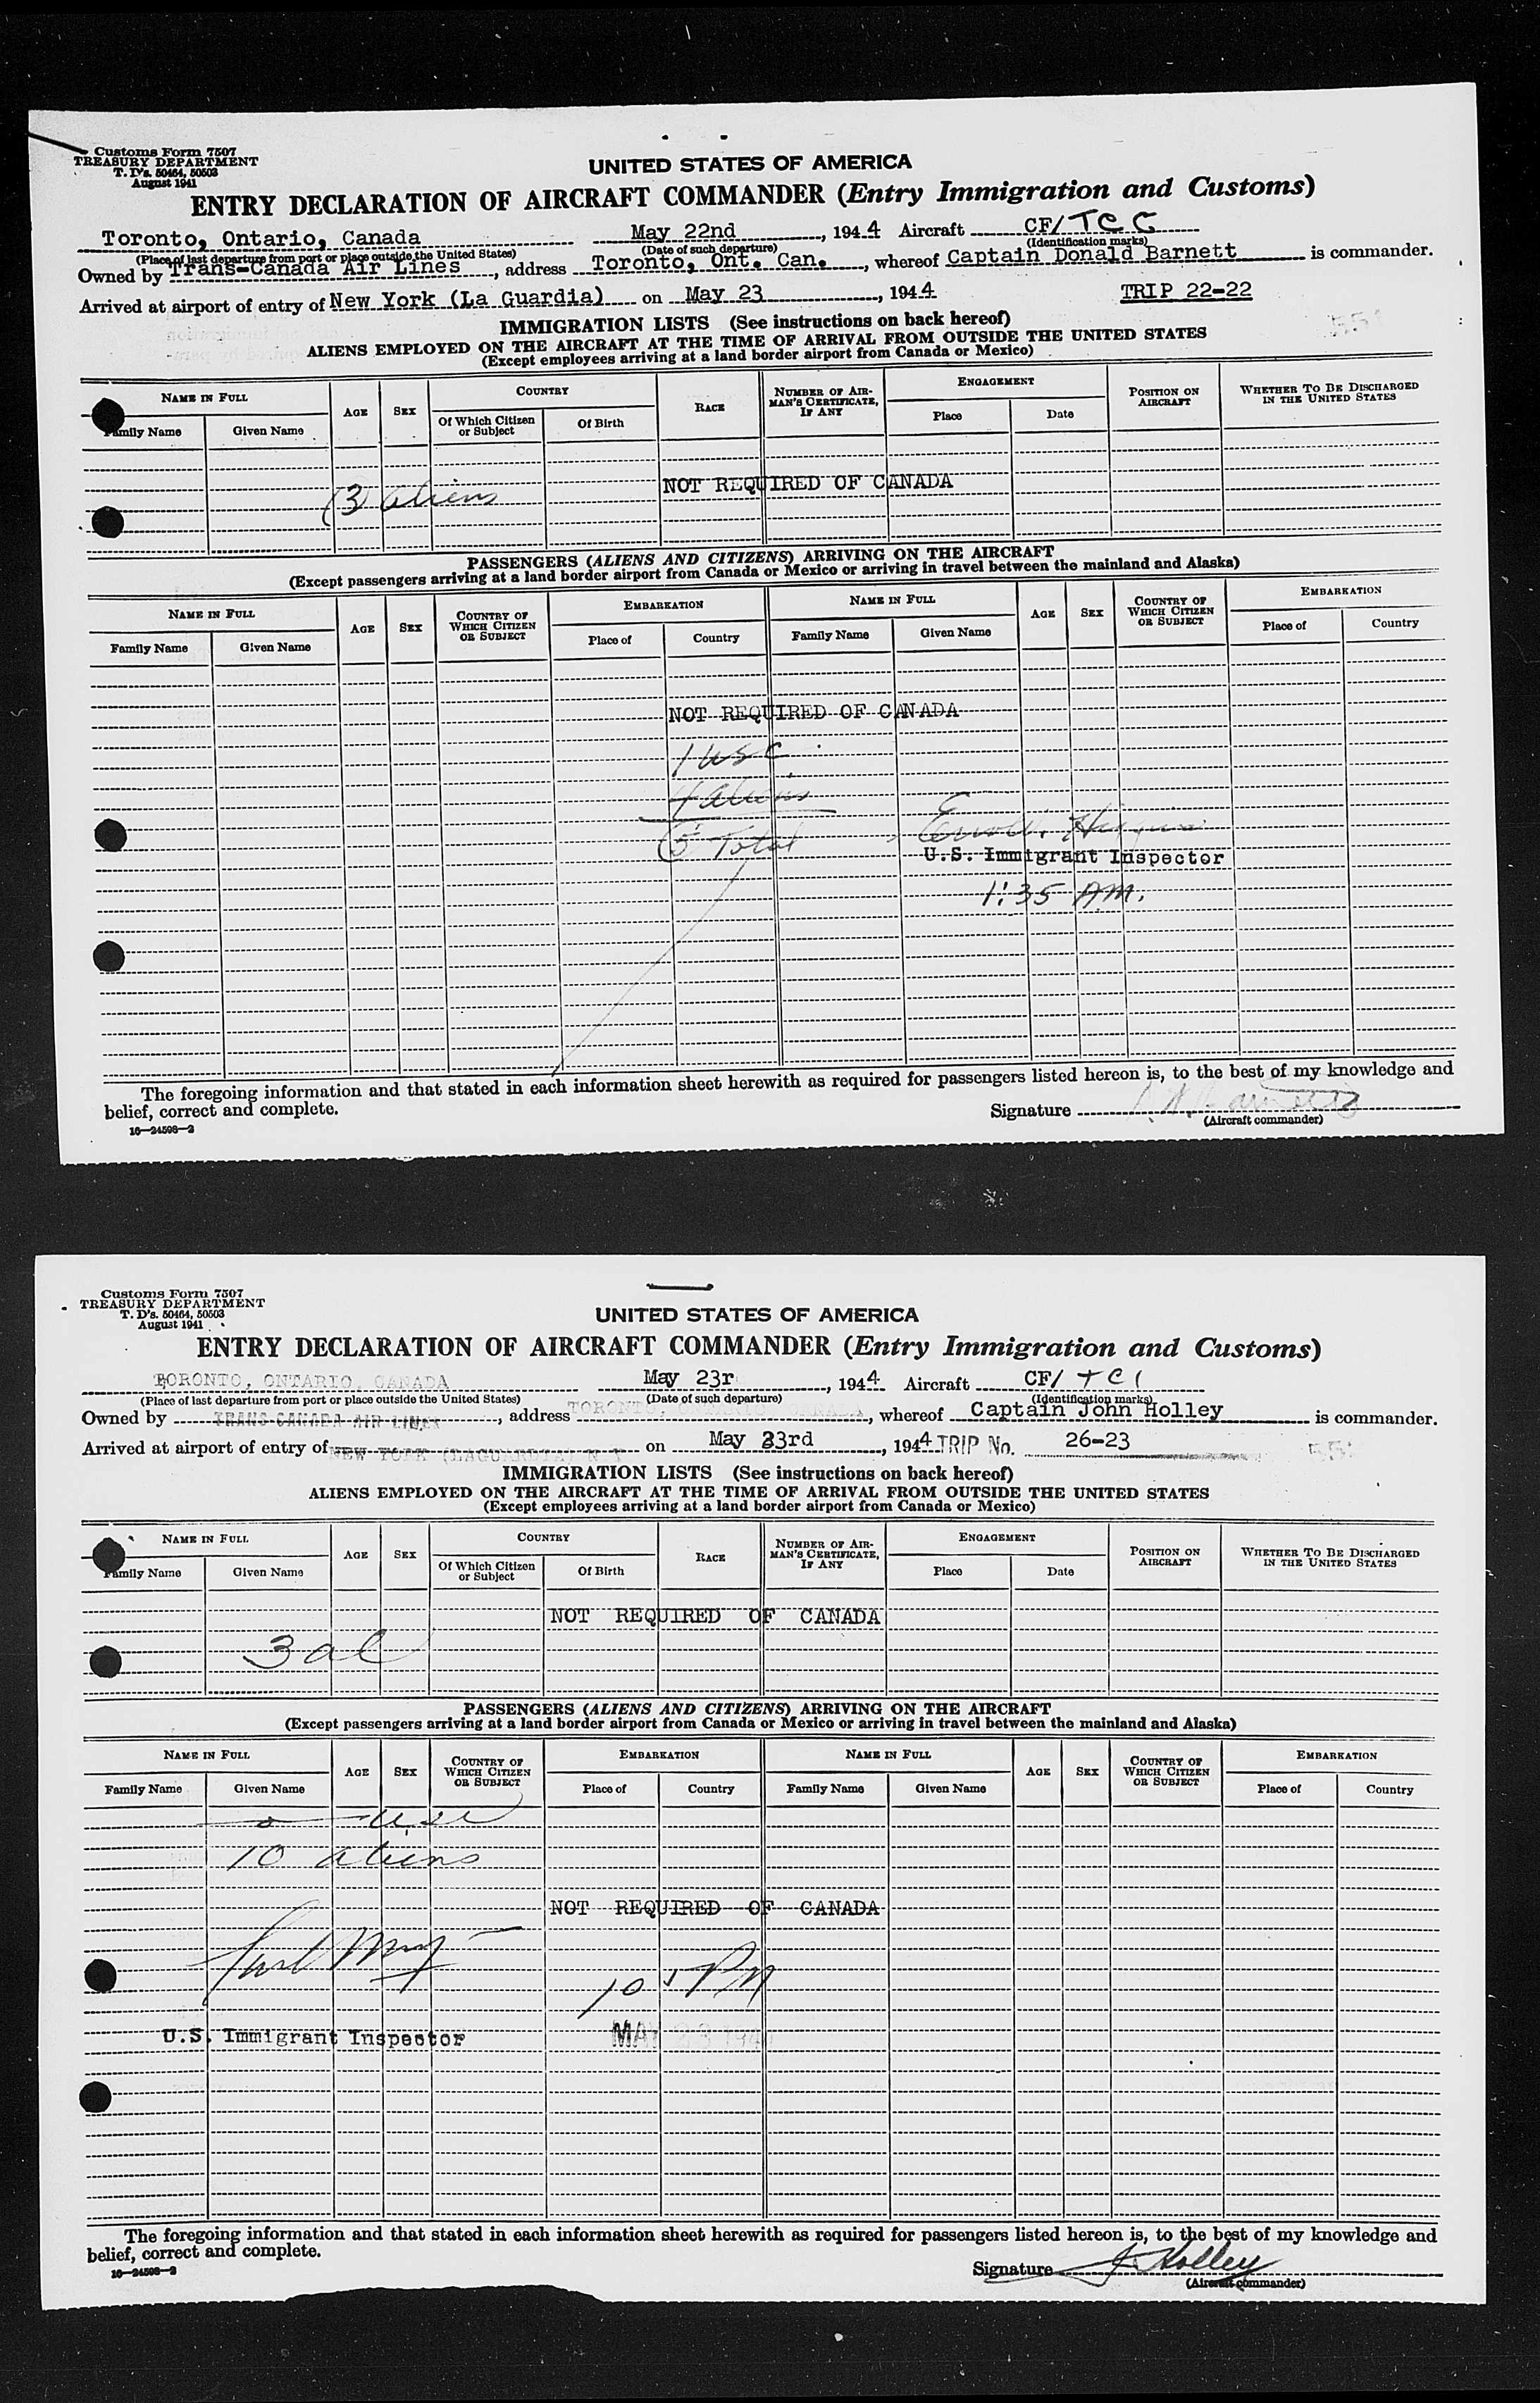 Customs Form 7507
TREASURY DEPARTMENT
T. D's. 50464, 50503
August 1941
UNITED STATES OF AMERICA
ENTRY DECLARATION OF AIRCRAFT COMMANDER (Entry Immigration and Customs)
Toronto, Ontario, Canada May 22nd, 1944 Aircraft CF/TCC
(Place of last departure from port or place outside the United States) (Date of such departure) (Identification marks)
Owned by Trans-Canada Air Lines, address Toronto, Ont. Can., whereof Captain Donald Barnett is commander.
Arrived at airport of entry of New York (La Guardia) on May 23, 1944 TRIP 22-22
IMMIGRATION LISTS (See instructions on back hereof)
ALIENS EMPLOYED ON THE AIRCRAFT AT THE TIME OF ARRIVAL FROM OUTSIDE THE UNITED STATES
(Except employees arriving at a land border airport from Canada or Mexico)
NAME IN FULL AGE SEX COUNTRY RACE NUMBER OF AIRMAN'S CERTIFICATE, IF ANY ENGAGEMENT POSITION ON AIRCRAFT WHETHER TO BE DISCHARGED IN THE UNITED STATES
Family Name Given Name Of Which Citizen or Subject Of Birth Place Date
NOT REQUIRED OF CANADA
(3) aliens
PASSENGERS (ALIENS AND CITIZENS) ARRIVING ON THE AIRCRAFT
(Except passengers arriving at a land border airport from Canada or Mexico or arriving in travel between the mainland and Alaska)
NAME IN FULL AGE SEX COUNTRY OF WHICH CITIZEN OR SUBJECT EMBARKATION NAME IN FULL AGE SEX COUNTRY OF WHICH CITIZEN OR SUBJECT EMBARKATION
Family Name Given Name Place of Country Family Name Given Name Place of Country
NOT REQUIRED OF CANADA
1 usc
4 aliens
5 Total
U.S. Immigrant Inspector
1:35 A.M.
The foregoing information and that stated in each information sheet herewith as required for passengers listed hereon is, to the best of my knowledge and
belief, correct and complete.
Signature
(Aircraft commander)
16-24598-2
Customs Form 7507
TREASURY DEPARTMENT
T. D's. 50464, 50503
August 1941
UNITED STATES OF AMERICA
ENTRY DECLARATION OF AIRCRAFT COMMANDER (Entry Immigration and Customs)
TORONTO, ONTARIO, CANADA May 23r, 1944 Aircraft CF/ TCI
(Place of last departure from port or place outside the United States) (Date of such departure) (Identification marks)
Owned by TRANS-CANADA AIR LINES, address TORONTO, ONTARIO CANADA, whereof Captain John Holley is commander.
Arrived at airport of entry of NEW YORK (LAGUARDIA) N Y on May 23rd, 1944 TRIP No. 26-23
IMMIGRATION LISTS (See instructions on back hereof)
ALIENS EMPLOYED ON THE AIRCRAFT AT THE TIME OF ARRIVAL FROM OUTSIDE THE UNITED STATES
(Except employees arriving at a land border airport from Canada or Mexico)
NAME IN FULL AGE SEX COUNTRY RACE NUMBER OF AIRMAN'S CERTIFICATE, IF ANY ENGAGEMENT POSITION ON AIRCRAFT WHETHER TO BE DISCHARGED IN THE UNITED STATES
Family Name Given Name Of Which Citizen or Subject Of Birth Place Date
NOT REQUIRED OF CANADA
3 al
PASSENGERS (ALIENS AND CITIZENS) ARRIVING ON THE AIRCRAFT
(Except passengers arriving at a land border airport from Canada or Mexico or arriving in travel between the mainland and Alaska)
NAME IN FULL AGE SEX COUNTRY OF WHICH CITIZEN OR SUBJECT EMBARKATION NAME IN FULL AGE SEX COUNTRY OF WHICH CITIZEN OR SUBJECT EMBARKATION
Family Name Given Name Place of Country Family Name Given Name Place of Country
10 aliens
NOT REQUIRED OF CANADA
U.S. Immigrant Inspector MAY 23 1944
The foregoing information and that stated in each information sheet herewith as required for passengers listed hereon is, to the best of my knowledge and
belief, correct and complete.
Signature J. Holley
(Aircraft commander)
16-24598-2